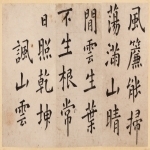 風簾能掃
蕩滿山晴
閒雲生葉
不生根常
日照乾坤
諷山雲